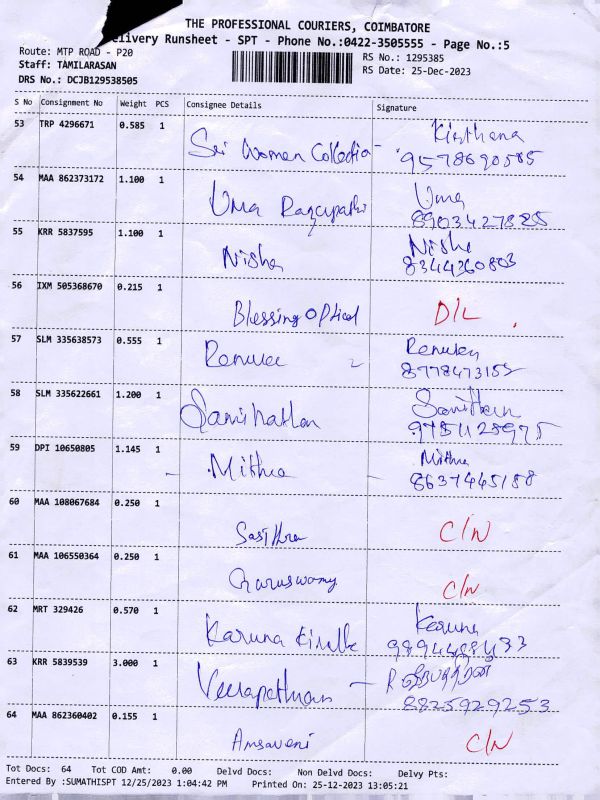 THE PROFESSIONAL COURIERS, COIMBATORE
elivery Runsheet - SPT - Phone No.:0422-3505555 - Page No.:5
Route: MTP ROAD - P20
RS No.: 1295385
Staff: TAMILARASAN
RS Date: 25-Dec-2023
DRS No.: DCJB129538505
S No Consignment No Weight PCS Consignee Details Signature
53 TRP 4296671 0.585 1 Sri Women Collection - Kirthana
9578690585
54 MAA 862373172 1.100 1 Uma Ragupathi Uma
8903427885
55 KRR 5837595 1.100 1 Nisha Nisha
8344360803
56 IXM 505368670 0.215 1 Blessing Optical D/L
57 SLM 335638573 0.555 1 Renuka
8778473152
58 SLM 335622661 1.200 1
9751128975
59 DPI 10650805 1.145 1 - Mithra - Mithra
8637445188
60 MAA 108067684 0.250 1 Sasithra C/N
61 MAA 106550364 0.250 1 Guruswamy C/N
62 MRT 329426 0.570 1 Karuna Karuna
9894488433
63 KRR 5839539 3.000 1 -
8825929253
64 MAA 862360402 0.155 1 Amsaveni C/N
Tot Docs: 64 Tot COD Amt: 0.00 Delvd Docs: Non Delvd Docs: Delvy Pts:
Entered By :SUMATHISPT 12/25/2023 1:04:42 PM Printed On: 25-12-2023 13:05:21